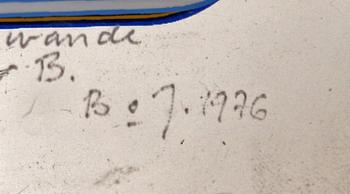 wande
B.
B º 7. 1976